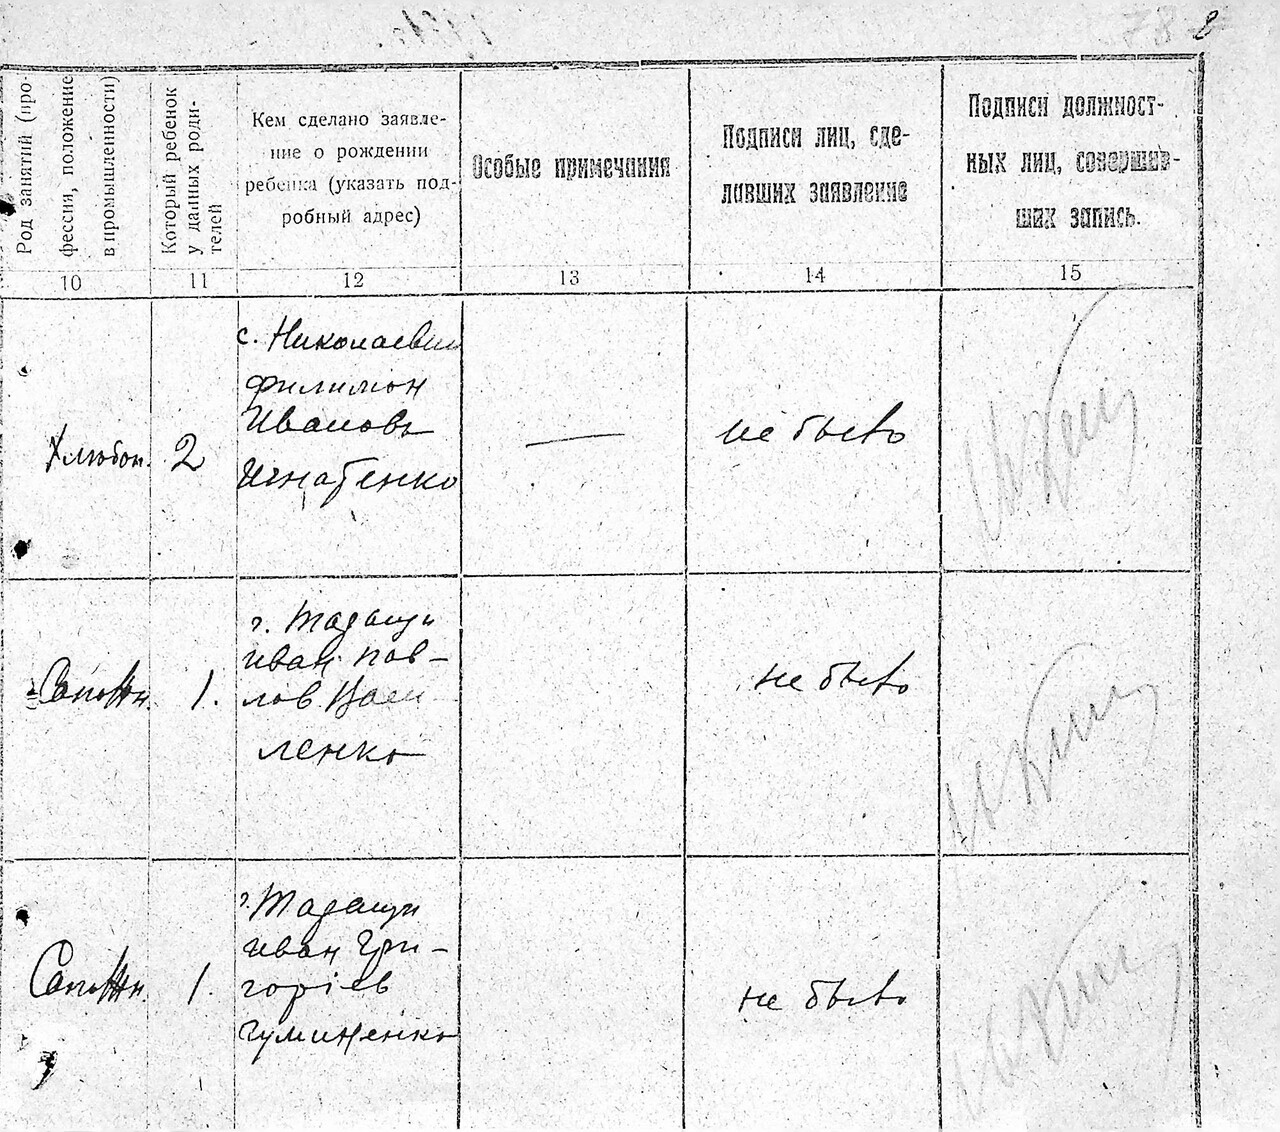 2
Род занятий (про-
фессия, положение
в промышленности)
Который ребенок
у данных роди-
телей
Кем сделано заявле-
ние о рождении
ребенка (указать под-
робный адрес)
Особые примечания
Подписи лиц, сде-
лавших заявление
Подписи должност-
ных лиц, совершив-
ших запись.
10
11
12
13
14
15
Хлюбоп.
2
с. Николаевки
Филимон
Ивановъ
Игнатенко
—
не было
Сапожн.
1.
г. Таращи
Иван Пав-
лов
ленко
не было
Сапожн.
1.
г. Таращи
Иван Гри-
горіев
Гуминенко
не было